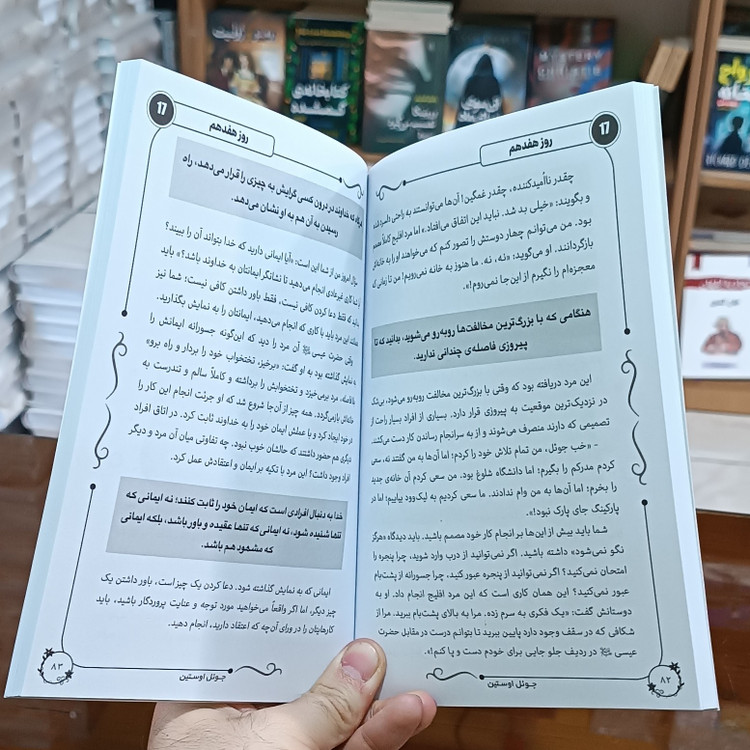 روز هفدهم
17
چقدر ناامیدکننده، چقدر غمگین! آن‌ها می‌توانستند به راحتی دلسرد شده
و بگویند: «خیلی بد شد. نباید این اتفاق می‌افتاد.» اما مرد افلیج کاملاً مصمم
بود. من می‌توانم چهار دوستش را تصور کنم که می‌خواهند او را به خانه‌اش
بازگردانند. او می‌گوید: «نه، نه. ما هنوز به خانه نمی‌رویم! من تا زمانی که
معجزه‌ام را نگیرم از این‌جا نمی‌روم!».
هنگامی که با بزرگ‌ترین مخالفت‌ها روبه‌رو می‌شوید، بدانید که تا
پیروزی فاصله‌ی چندانی ندارید.
این مرد دریافته بود که وقتی با بزرگ‌ترین مخالفت روبه‌رو می‌شود، بی‌شک
در نزدیک‌ترین موقعیت به پیروزی قرار دارد. بسیاری از افراد بسیار راحت از
تصمیمی که دارند منصرف می‌شوند و از به سرانجام رساندن کار دست می‌کشند.
- «خب جوئل، من تمام تلاش خود را کردم؛ اما آن‌ها به من گفتند نه. سعی
کردم مدرکم را بگیرم؛ اما دانشگاه شلوغ بود. من سعی کردم آن خانه‌ی جدید
را بخرم؛ اما آن‌ها به من وام ندادند. ما سعی کردیم به لیک‌وود بیاییم؛ اما در
پارکینگ جای پارک نبود!».
شما باید بیش از این‌ها بر انجام کار خود مصمم باشید. باید دیدگاه «هرگز
نگو نمی‌شود» داشته باشید. اگر نمی‌توانید از درب وارد شوید، چرا پنجره را
امتحان نمی‌کنید؟ اگر نمی‌توانید از پنجره عبور کنید، چرا جسورانه از پشت‌بام
عبور نمی‌کنید؟ این همان کاری است که این مرد افلیج انجام داد. او به
دوستانش گفت: «یک فکری به سرم زده. مرا به بالای پشت‌بام ببرید. مرا از
شکافی که در سقف وجود دارد پایین ببرید تا بتوانم درست در مقابل حضرت
عیسی ﷺ در ردیف جلو جایی برای خودم دست و پا کنم!».
جوئل اوستین
۸۲
17
روز هفدهم
که خداوند در درون کسی گرایش به چیزی را قرار می‌دهد، راه
رسیدن به آن هم به او نشان می‌دهد.
سؤال امروز من از شما این است: «آیا ایمانی دارید که خدا بتواند آن را ببیند؟
کاری غیرعادی انجام می‌دهید تا نشانگر ایمانتان به خداوند باشد؟» باید
که فقط دعا کردن کافی نیست، فقط باور داشتن کافی نیست؛ شما نیز
این مرد باید با کاری که انجام می‌دهید، ایمانتان را به نمایش بگذارید.
وقتی حضرت عیسی ﷺ آن مرد را دید که این‌گونه جسورانه ایمانش را
به نمایش گذاشته بود به او گفت: «برخیز، تختخواب خود را بردار و راه برو»
بلافاصله، مرد برمی‌خیزد و تختخوابش را برداشته و کاملاً سالم و تندرست به
خانه‌اش بازمی‌گردد. همه چیز از آن‌جا شروع شد که او جرئت انجام این کار را
در خود ایجاد کرد و با عملش ایمان خود را به خداوند ثابت کرد. در اتاق افراد
دیگری هم حضور داشتند که حالشان خوب نبود. چه تفاوتی میان آن مرد و دیگر
افراد وجود داشت؟ این مرد با تکیه بر ایمان و اعتقادش عمل کرد.
خدا به دنبال افرادی است که ایمان خود را ثابت کنند؛ نه ایمانی که
تنها شنیده شود، نه ایمانی که تنها عقیده و باور باشد، بلکه ایمانی
که مشهود هم باشد.
ایمانی که به نمایش گذاشته شود. دعا کردن یک چیز است، باور داشتن یک
چیز دیگر، اما اگر واقعاً می‌خواهید مورد توجه و عنایت پروردگار باشید، باید
کارهایتان را در ورای آن‌چه که اعتقاد دارید، انجام دهید.
جوئل اوستین
۸۳